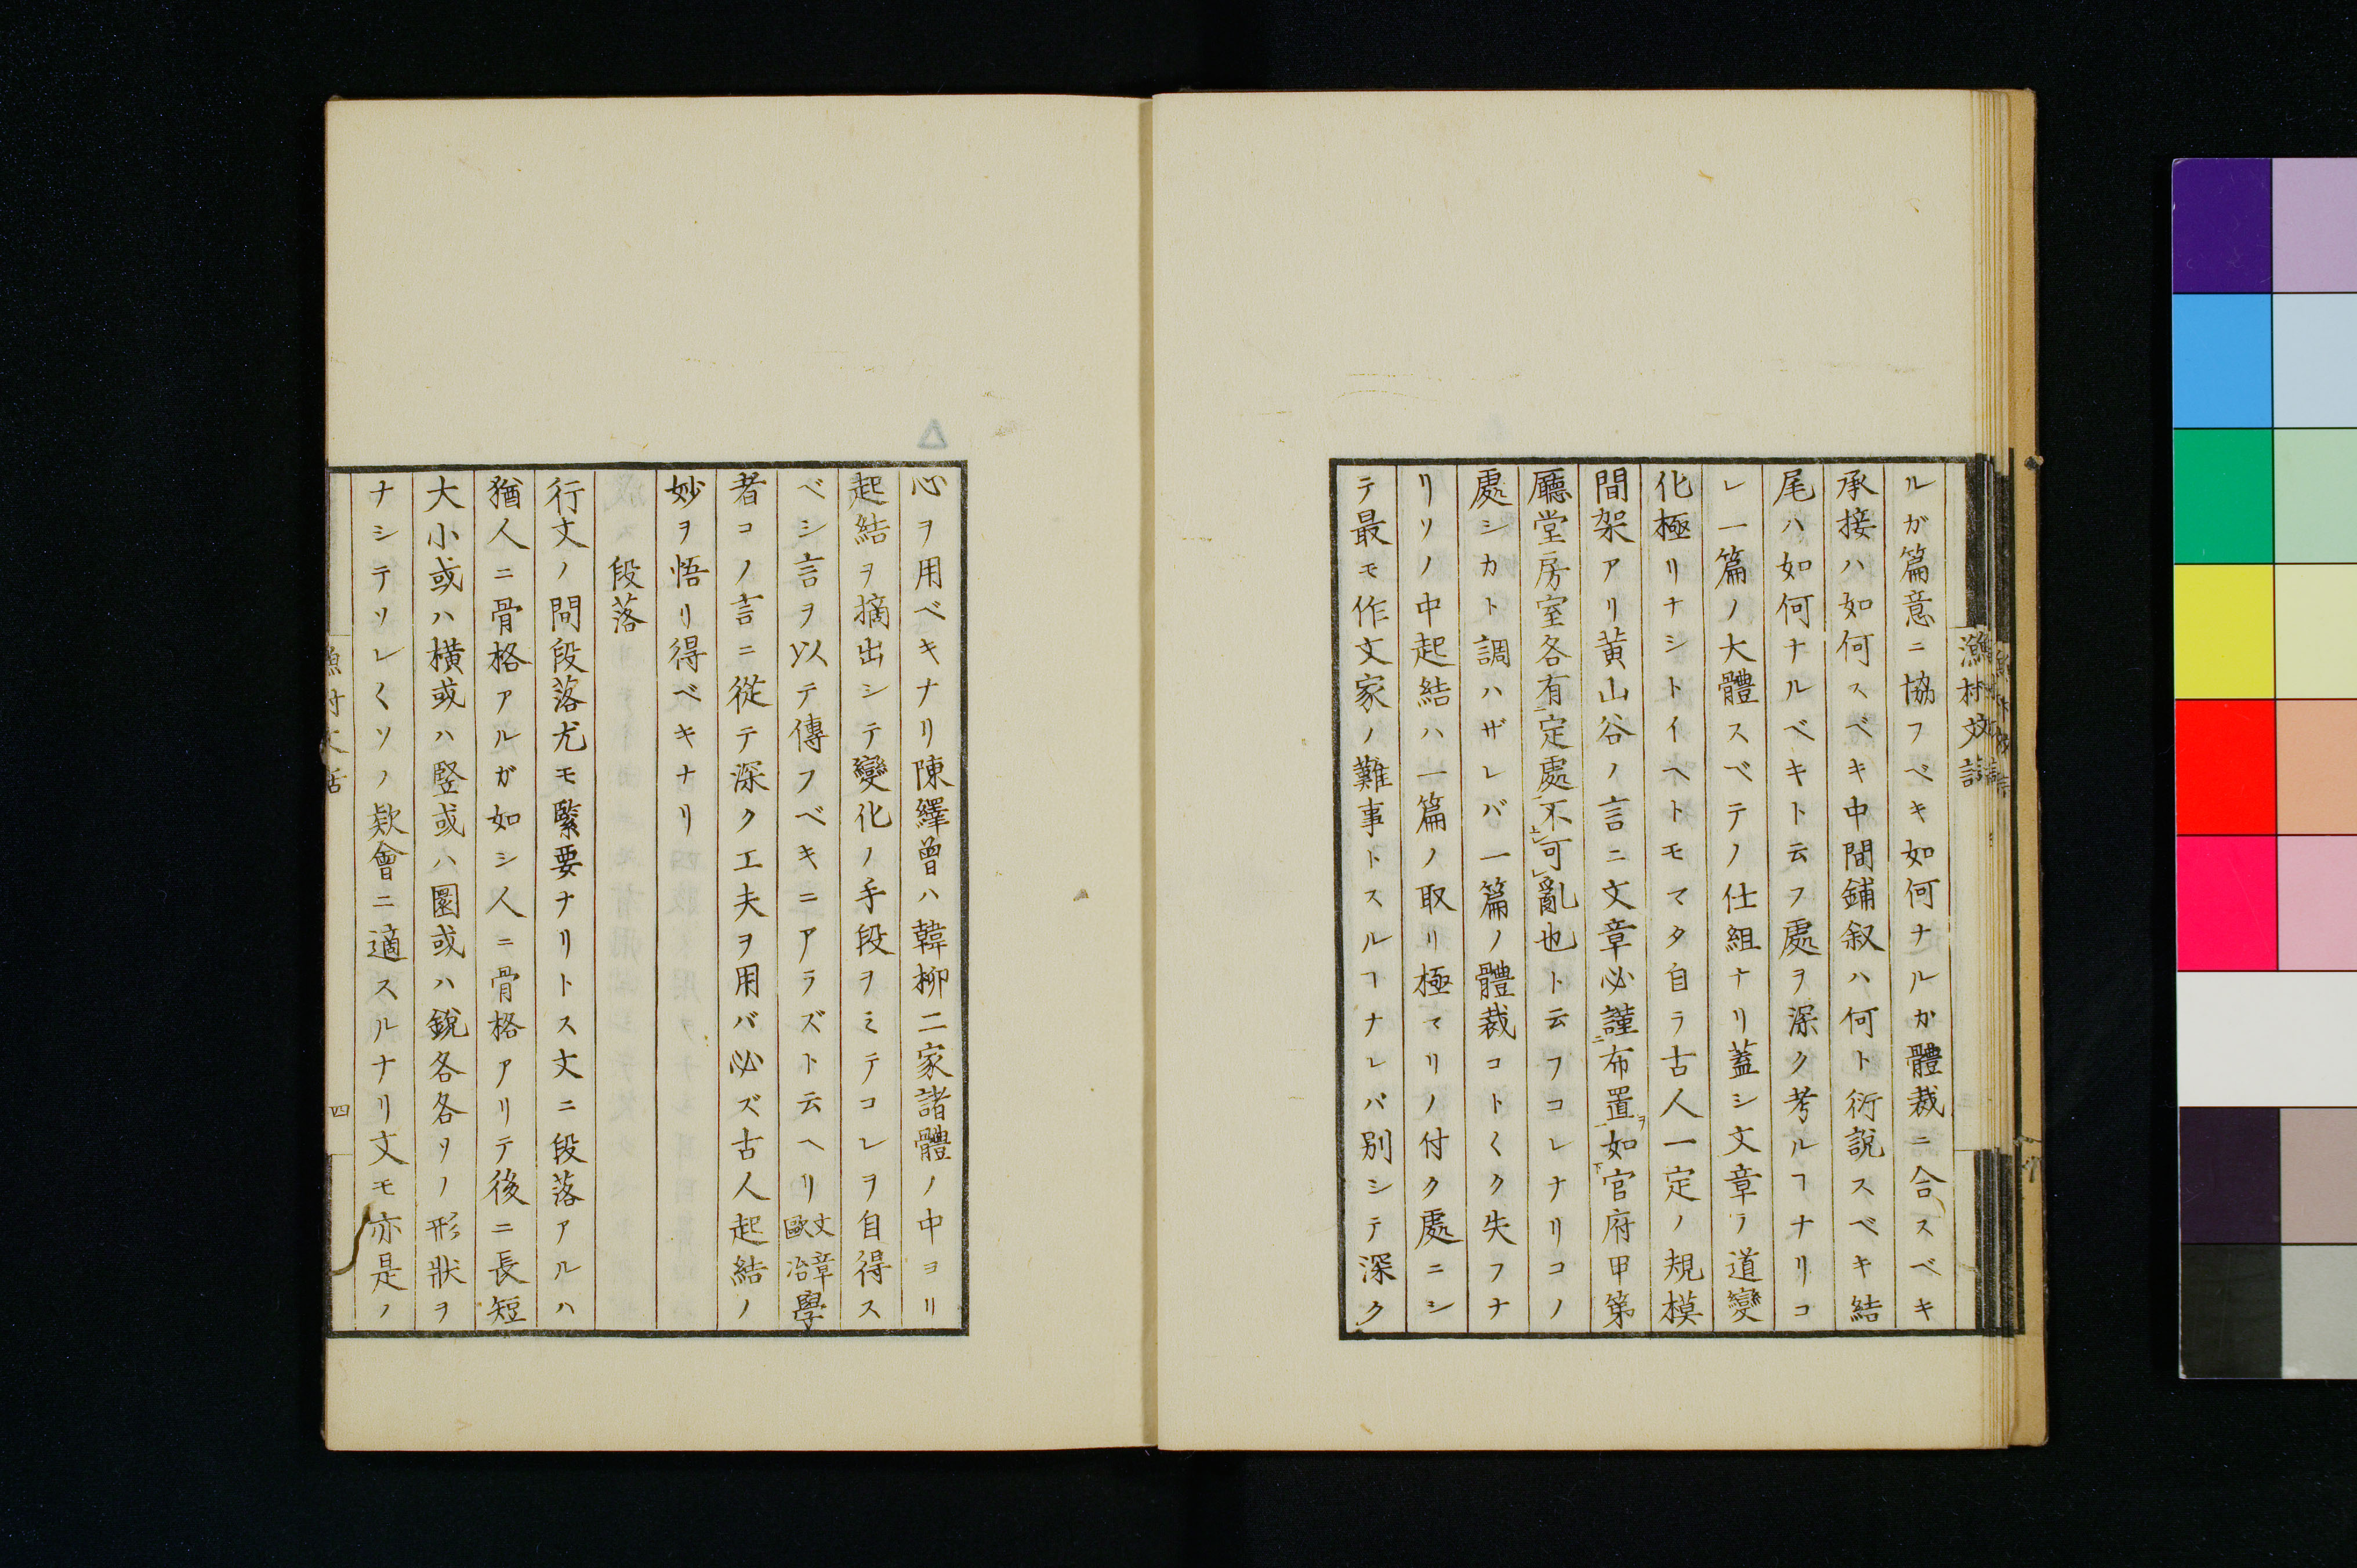 漁村文話
ルガ篇意ニ協フベキ如何ナルガ體裁ニ合スベキ
承接ハ如何スベキ中間鋪叙ハ何ト衍說スベキ結
尾ハ如何ナルベキト云フ處ヲ深ク考ルヿナリコ
レ一篇ノ大體スベテノ仕組ナリ蓋シ文章ノ道變
化極リナシトイヘトモマタ自ラ古人一定ノ規模
間架アリ黄山谷ノ言ニ文章必謹二布置一ヲ如下官府甲第
廳堂房室各有二定處一不上レ可レ亂也ト云フコレナリコノ
處シカト調ハザレバ一篇ノ體裁コト〱ク失フナ
リソノ中起結ハ一篇ノ取リ極マリノ付ク處ニシ
テ最モ作文家ノ難事トスルヿナレバ別シテ深ク
△
心ヲ用ベキナリ陳繹曾ハ韓柳二家諸體ノ中ヨリ
起結ヲ摘出シテ變化ノ手段ヲミテコレヲ自得ス
ベシ言ヲ以テ傳フベキニアラズト云ヘリ文章歐冶學
者コノ言ニ從テ深ク工夫ヲ用バ必ズ古人起結ノ
妙ヲ悟リ得ベキナリ
段落
行文ノ間段落尤モ緊要ナリトス文ニ段落アルハ
猶人ニ骨格アルガ如シ人ニ骨格アリテ後ニ長短
大小或ハ橫或ハ竪或ハ圓或ハ銳各各ソノ形狀ヲ
ナシテソレ〱ソノ欵會ニ適スルナリ文モ亦是ノ
漁村文話
四